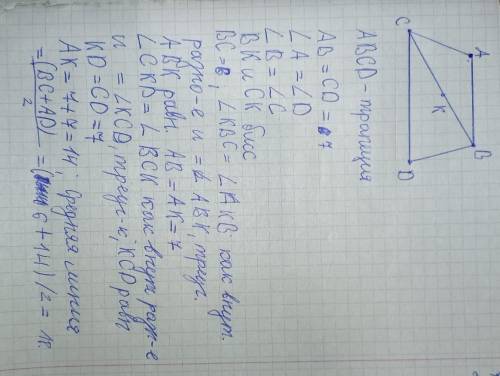 A
B
C
D
K
ABCD - трапеция
AB = CD = 7
∠A = ∠D
∠B = ∠C
BK и CK бис
BC = 6, ∠KBC = ∠AKB как внут.
разно-е и = ∠ABK, треуг.
ABK равн. AB = AK = 7
∠CKD = ∠BCK как внут разн-е
и = ∠KCD, треуг-к, KCD равн
KD = CD = 7
AK = 7+7 = 14; средняя линия
= (BC+AD)/2 = (6+14)/2 =